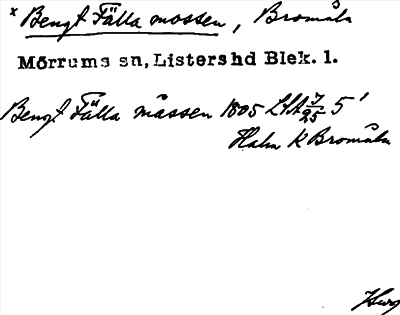 x Bengt Fälla mossen, Bromåla
Mörrums sn, Listershd Blek. l.
Bengt Fälla måssen 1805 LSA 7/25 5'
Halm k Bromåla